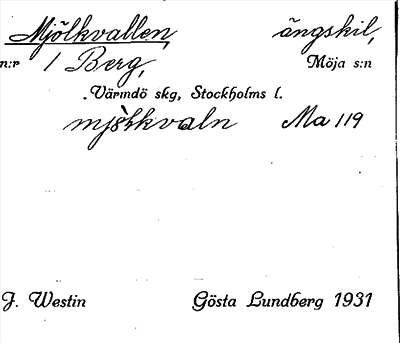 Mjölkvallen, ängskil,
n:r 1 Berg, Möja s:n
Värmdö skg, Stockholms l.
mjö̀lkvaln Ma 119
J. Westin Gösta Lundberg 1931